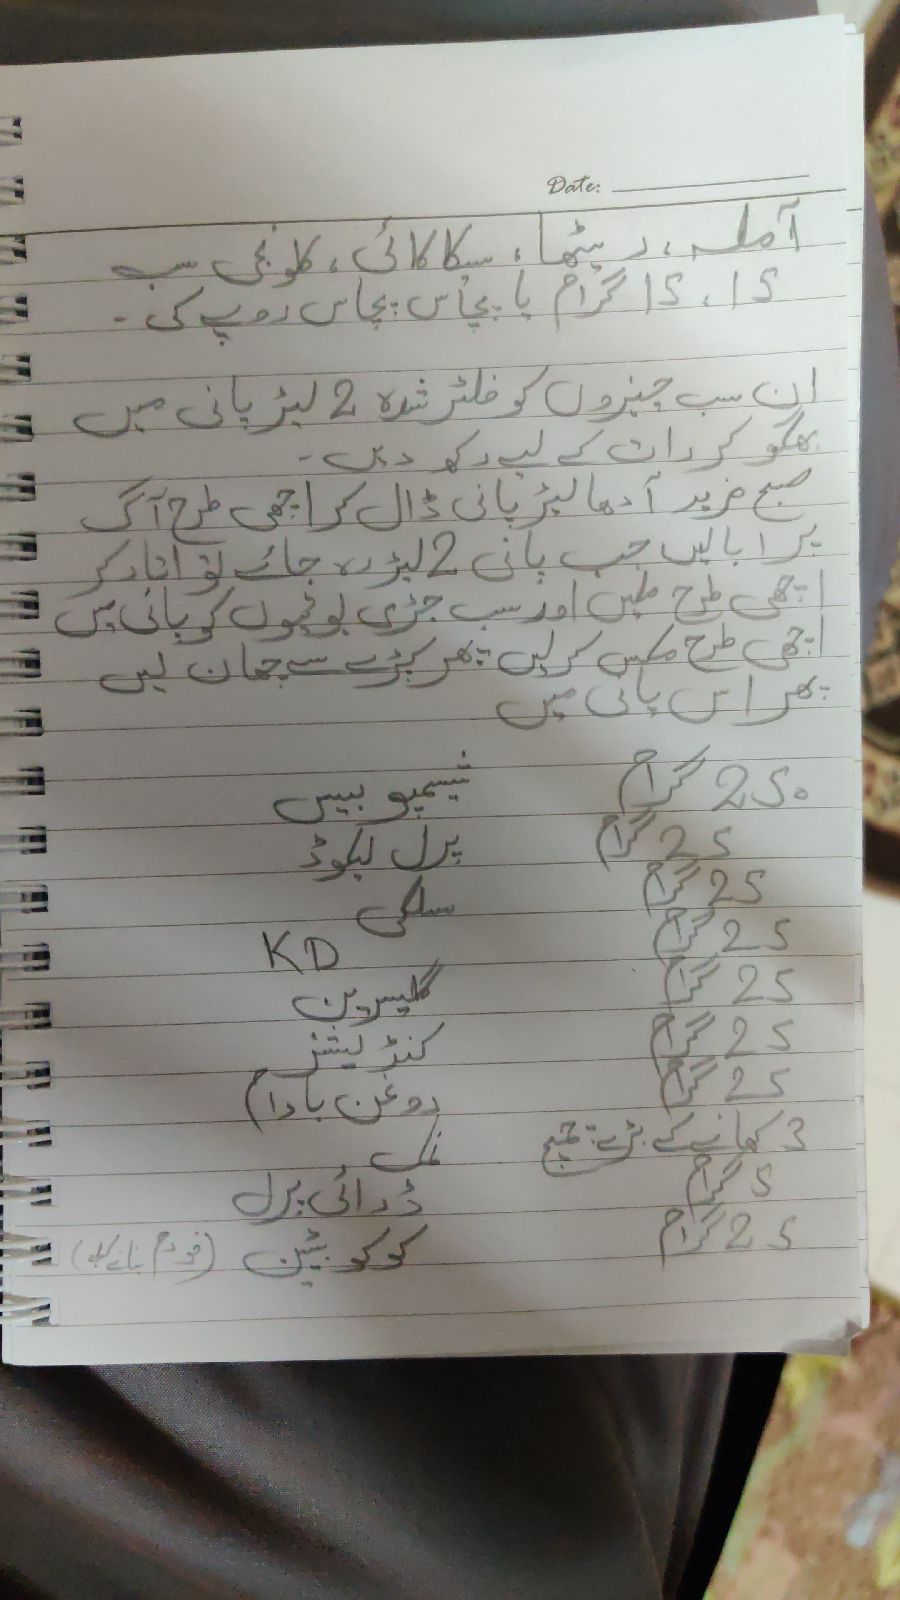 Date:
آملہ، ریٹھا، سکاکائی، کلونجی سب
15، 15 گرام یا پچاس پچاس روپے کی۔
ان سب چیزوں کو فلٹر شدہ 2 لیٹر پانی میں
بھگو کر رات کے لیے رکھ دیں۔
صبح مزید آدھا لیٹر پانی ڈال کر اچھی طرح آگ
پر ابالیں جب پانی 2 لیٹر رہ جائے تو اتار کر
اچھی طرح ملیں اور سب جڑی بوٹیوں کو پانی میں
اچھی طرح مکس کرلیں پھر کپڑے سے چھان لیں
پھر اس پانی میں
250 گرام شیمپو بیس
25 گرام پرل لیکوڈ
25 گرام سلکی
25 گرام KD
25 گرام گلیسرین
25 گرام کنڈیشنر
25 گرام روغن بادام
3 کھانے کے بڑے چمچ نمک
5 گرام ڈرائی پرل
25 گرام کوکو بٹین (فوم بنانے کیلئے)